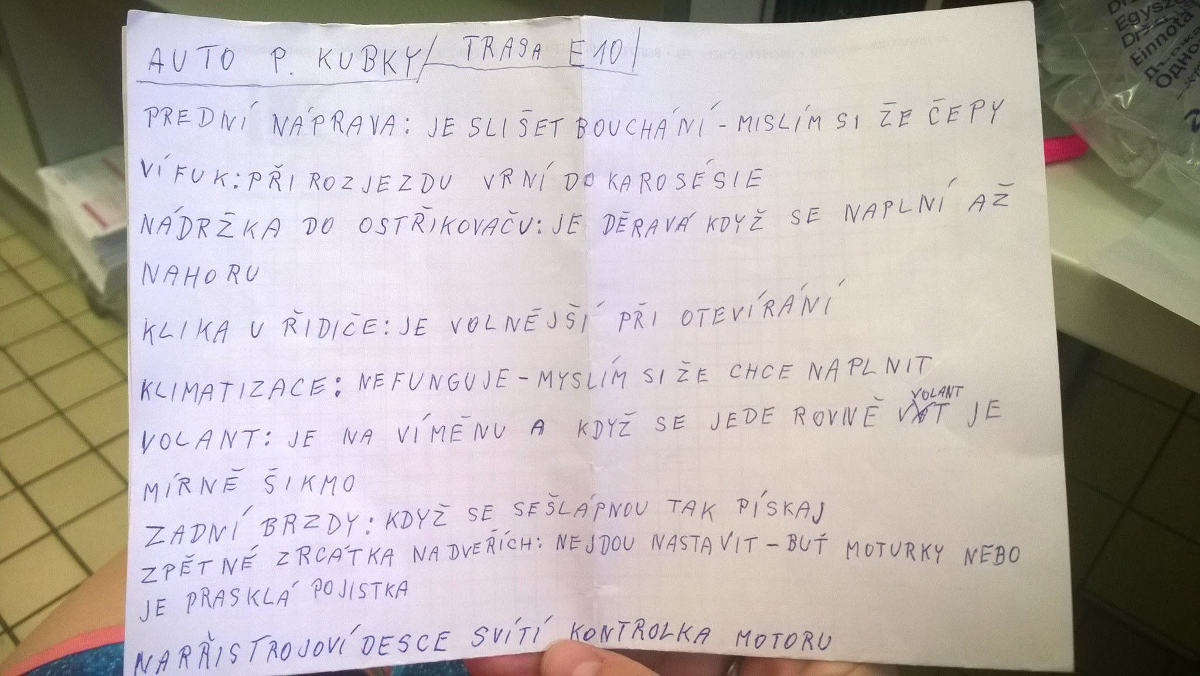 AUTO P. KUBKY/ TRASA E10/
PŘEDNÍ NÁPRAVA: JE SLIŠET BOUCHÁNÍ - MISLÍM SI ŽE ČEPY
VÍFUK: PŘI ROZJEZDU VRNÍ DO KAROSÉSIE
NÁDRŽKA DO OSTŘIKOVAČU: JE DĚRAVÁ KDYŽ SE NAPLNÍ AŽ
NAHORU
KLIKA U ŘIDIČE: JE VOLNĚJŠÍ PŘI OTEVÍRÁNÍ
KLIMATIZACE: NEFUNGUJE - MYSLÍM SI ŽE CHCE NAPLNIT
VOLANT: JE NA VÍMĚNU A KDYŽ SE JEDE ROVNĚ VOLANT JE
MÍRNĚ ŠIKMO
ZADNÍ BRZDY: KDYŽ SE SEŠLÁPNOU TAK PÍSKAJ
ZPĚTNÉ ZRCÁTKA NA DVEŘÍCH: NEJDOU NASTAVIT - BUŤ MOTURKY NEBO
JE PRASKLÁ POJISTKA
NA PŘISTROJOVÍ DESCE SVÍTÍ KONTROLKA MOTORU
Egysze
Einnota